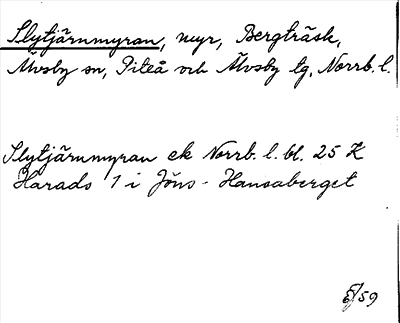 Slytjärnmyran, myr, Bergträsk,
Älvsby sn, Piteå och Älvsby tg, Norrb. l.
Slytjärnmyran ek Norrb. l. bl. 25 K
Harads 1 i Jöns-Hansaberget
5/59